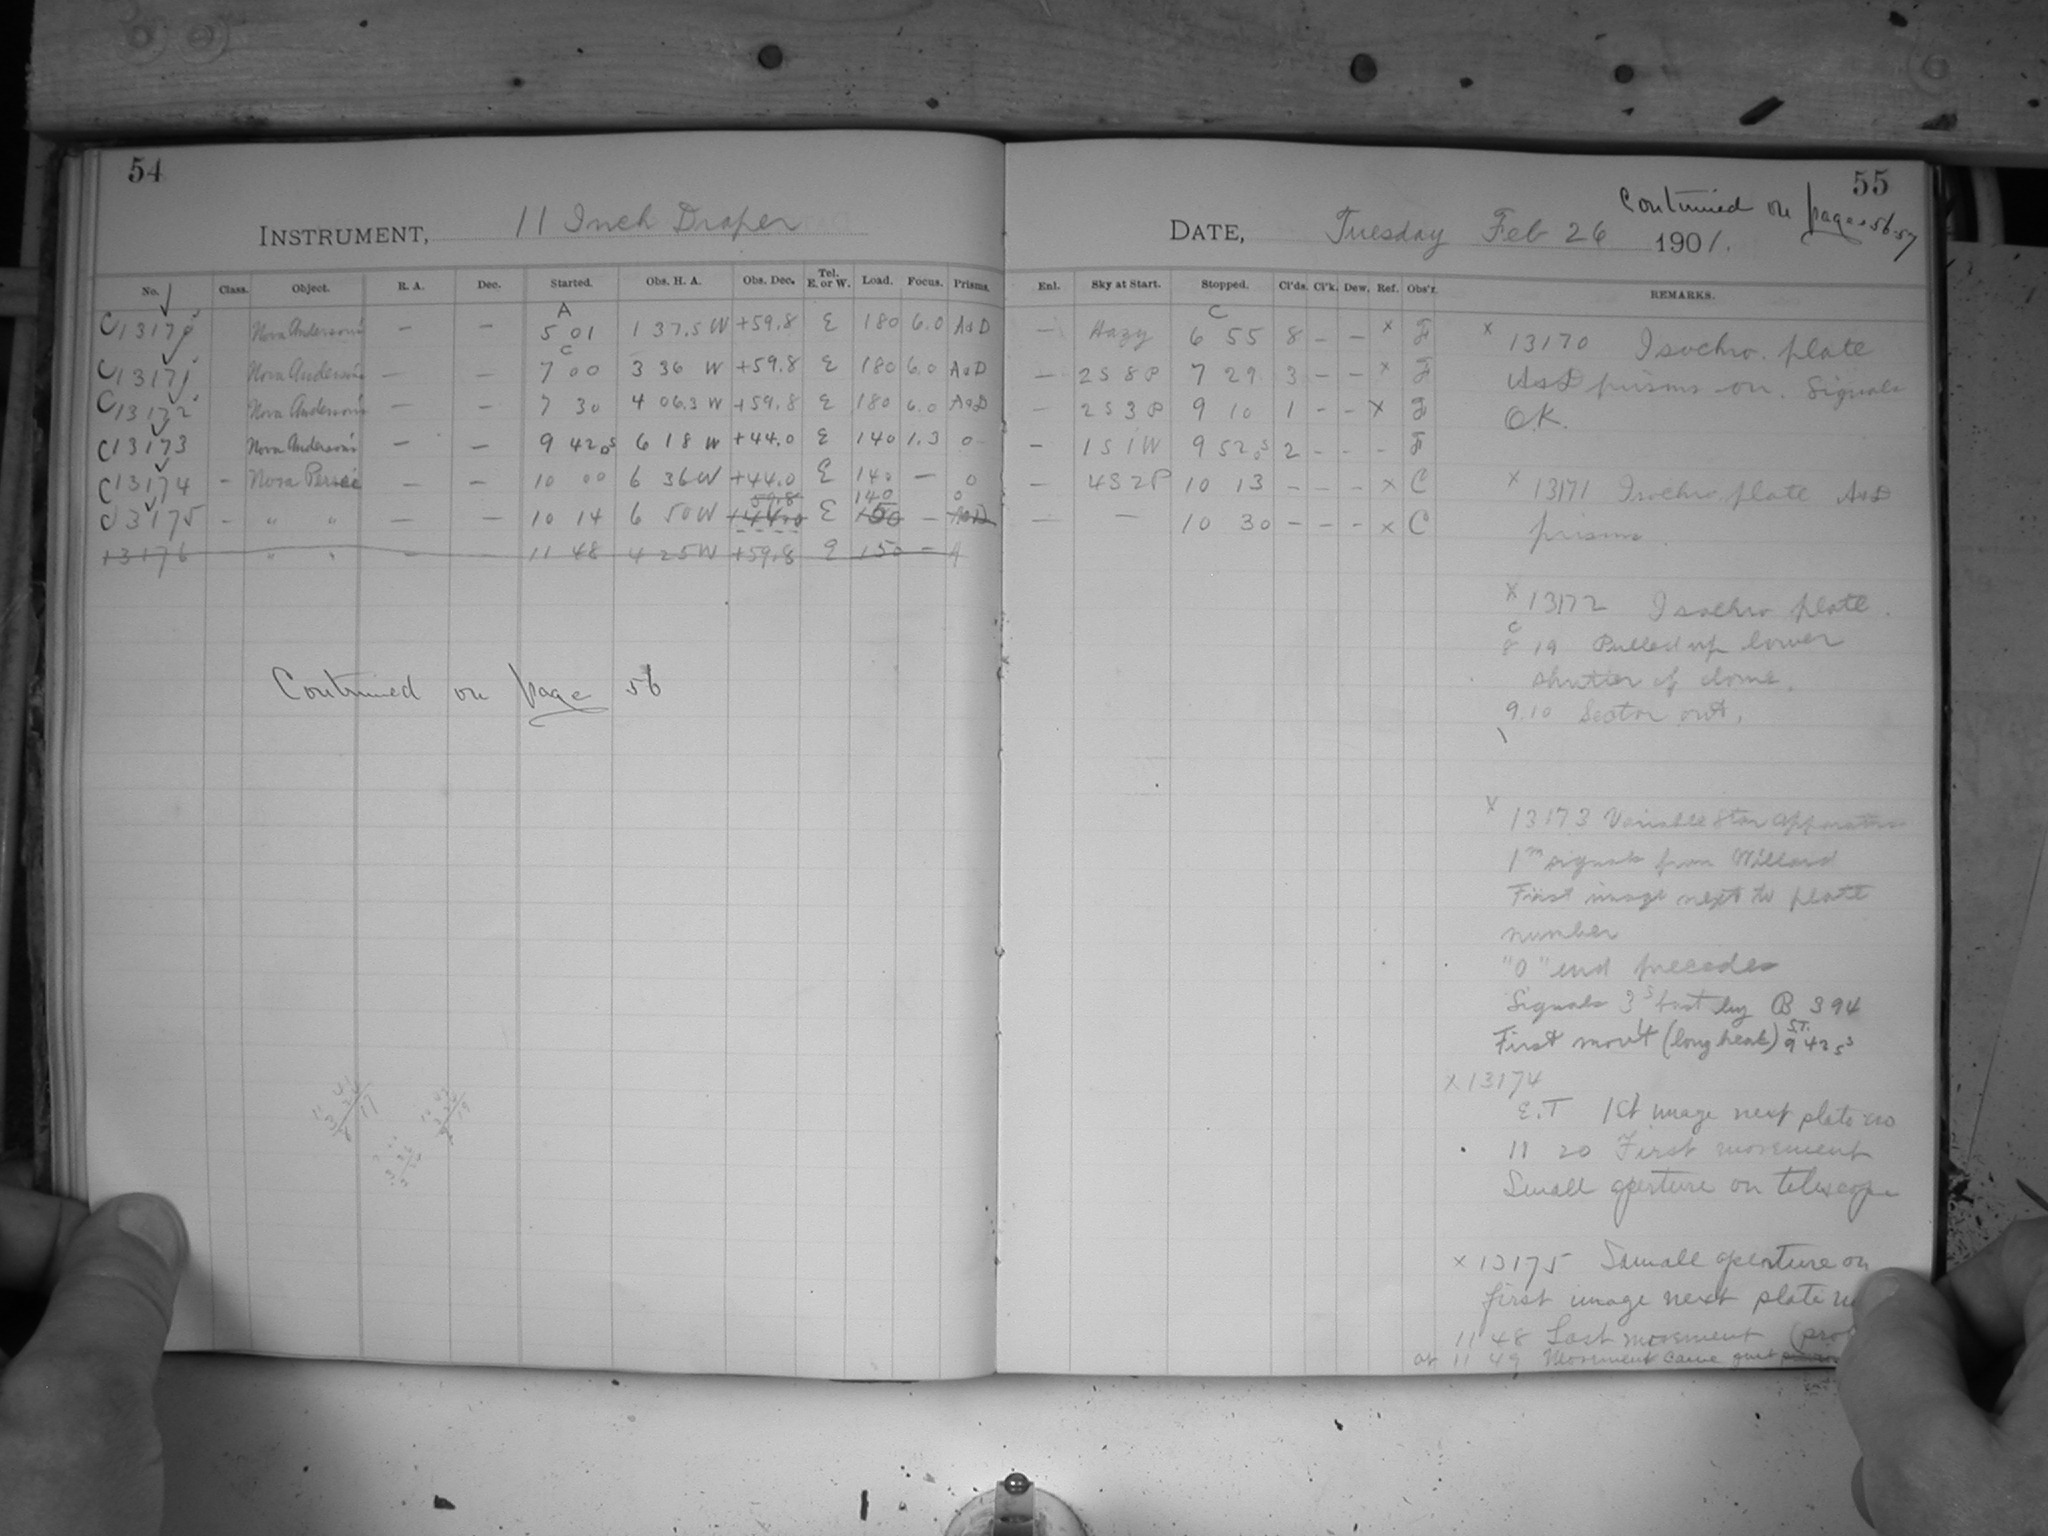 54
INSTRUMENT, 11 Inch Draper
No. Class. Object. R. A. Dec. Started. Obs. H. A. Obs. Dec. Tel. E. or W. Load. Focus. Prisms.
C13170 Nova Anderson's — — A 5 01 1 37.5 W +59.8 E 180 6.0 A&D
C13171 Nova Anderson's — — C 7 00 3 36 W +59.8 E 180 6.0 A&D
C13172 Nova Anderson's — — 7 30 4 06.3 W +59.8 E 180 6.0 A&D
C13173 Nova Anderson's — — 9 42 05 6 18 W +44.0 E 140 1.3 0
C13174 — Nova Persei — — 10 00 6 36 W +44.0 E 140 — 0
C13175 — " " — — 10 14 6 50 W 59.8 +44.0 E 140 150 — 0 A&D
13176 " " — — 11 48 4 25 W +59.8 E 150 — A
Continued on page 56
55
Continued on pages 56-57
DATE, Tuesday Feb 26 1901.
Enl. Sky at Start. Stopped. Cl'ds. Cl'k. Dew. Ref. Obs'r. REMARKS.
— Hazy C 6 55 8 – – x F
— 2S8P 7 29 3 – – x F
— 2S3P 9 10 1 – – x F
— 1S1W 9 52 05 2 – – – F
— 4S2P 10 13 – – – x C
— — 10 30 – – – x C
x 13170 Isochro. plate
A&D prisms on. Signals
O.K.
x 13171 Isochro. plate A&D
prisms.
x 13172 Isochro plate.
C
8 19 Pulled up lower
shutter of dome.
9.10 Sector out.
x 13173 Variable Star apparatus
1m signals from Willard
First image next to plate
number
"0" end precedes
Signals 3s fast by B 394
First mov't (long beat) S.T. 9 42 5s
x 13174
E.T 1st image next plate no
11 20 First movement
Small aperture on telescope
x 13175 Small aperture on
first image next plate
11 48 Last movement
or 11 49 Movement came just